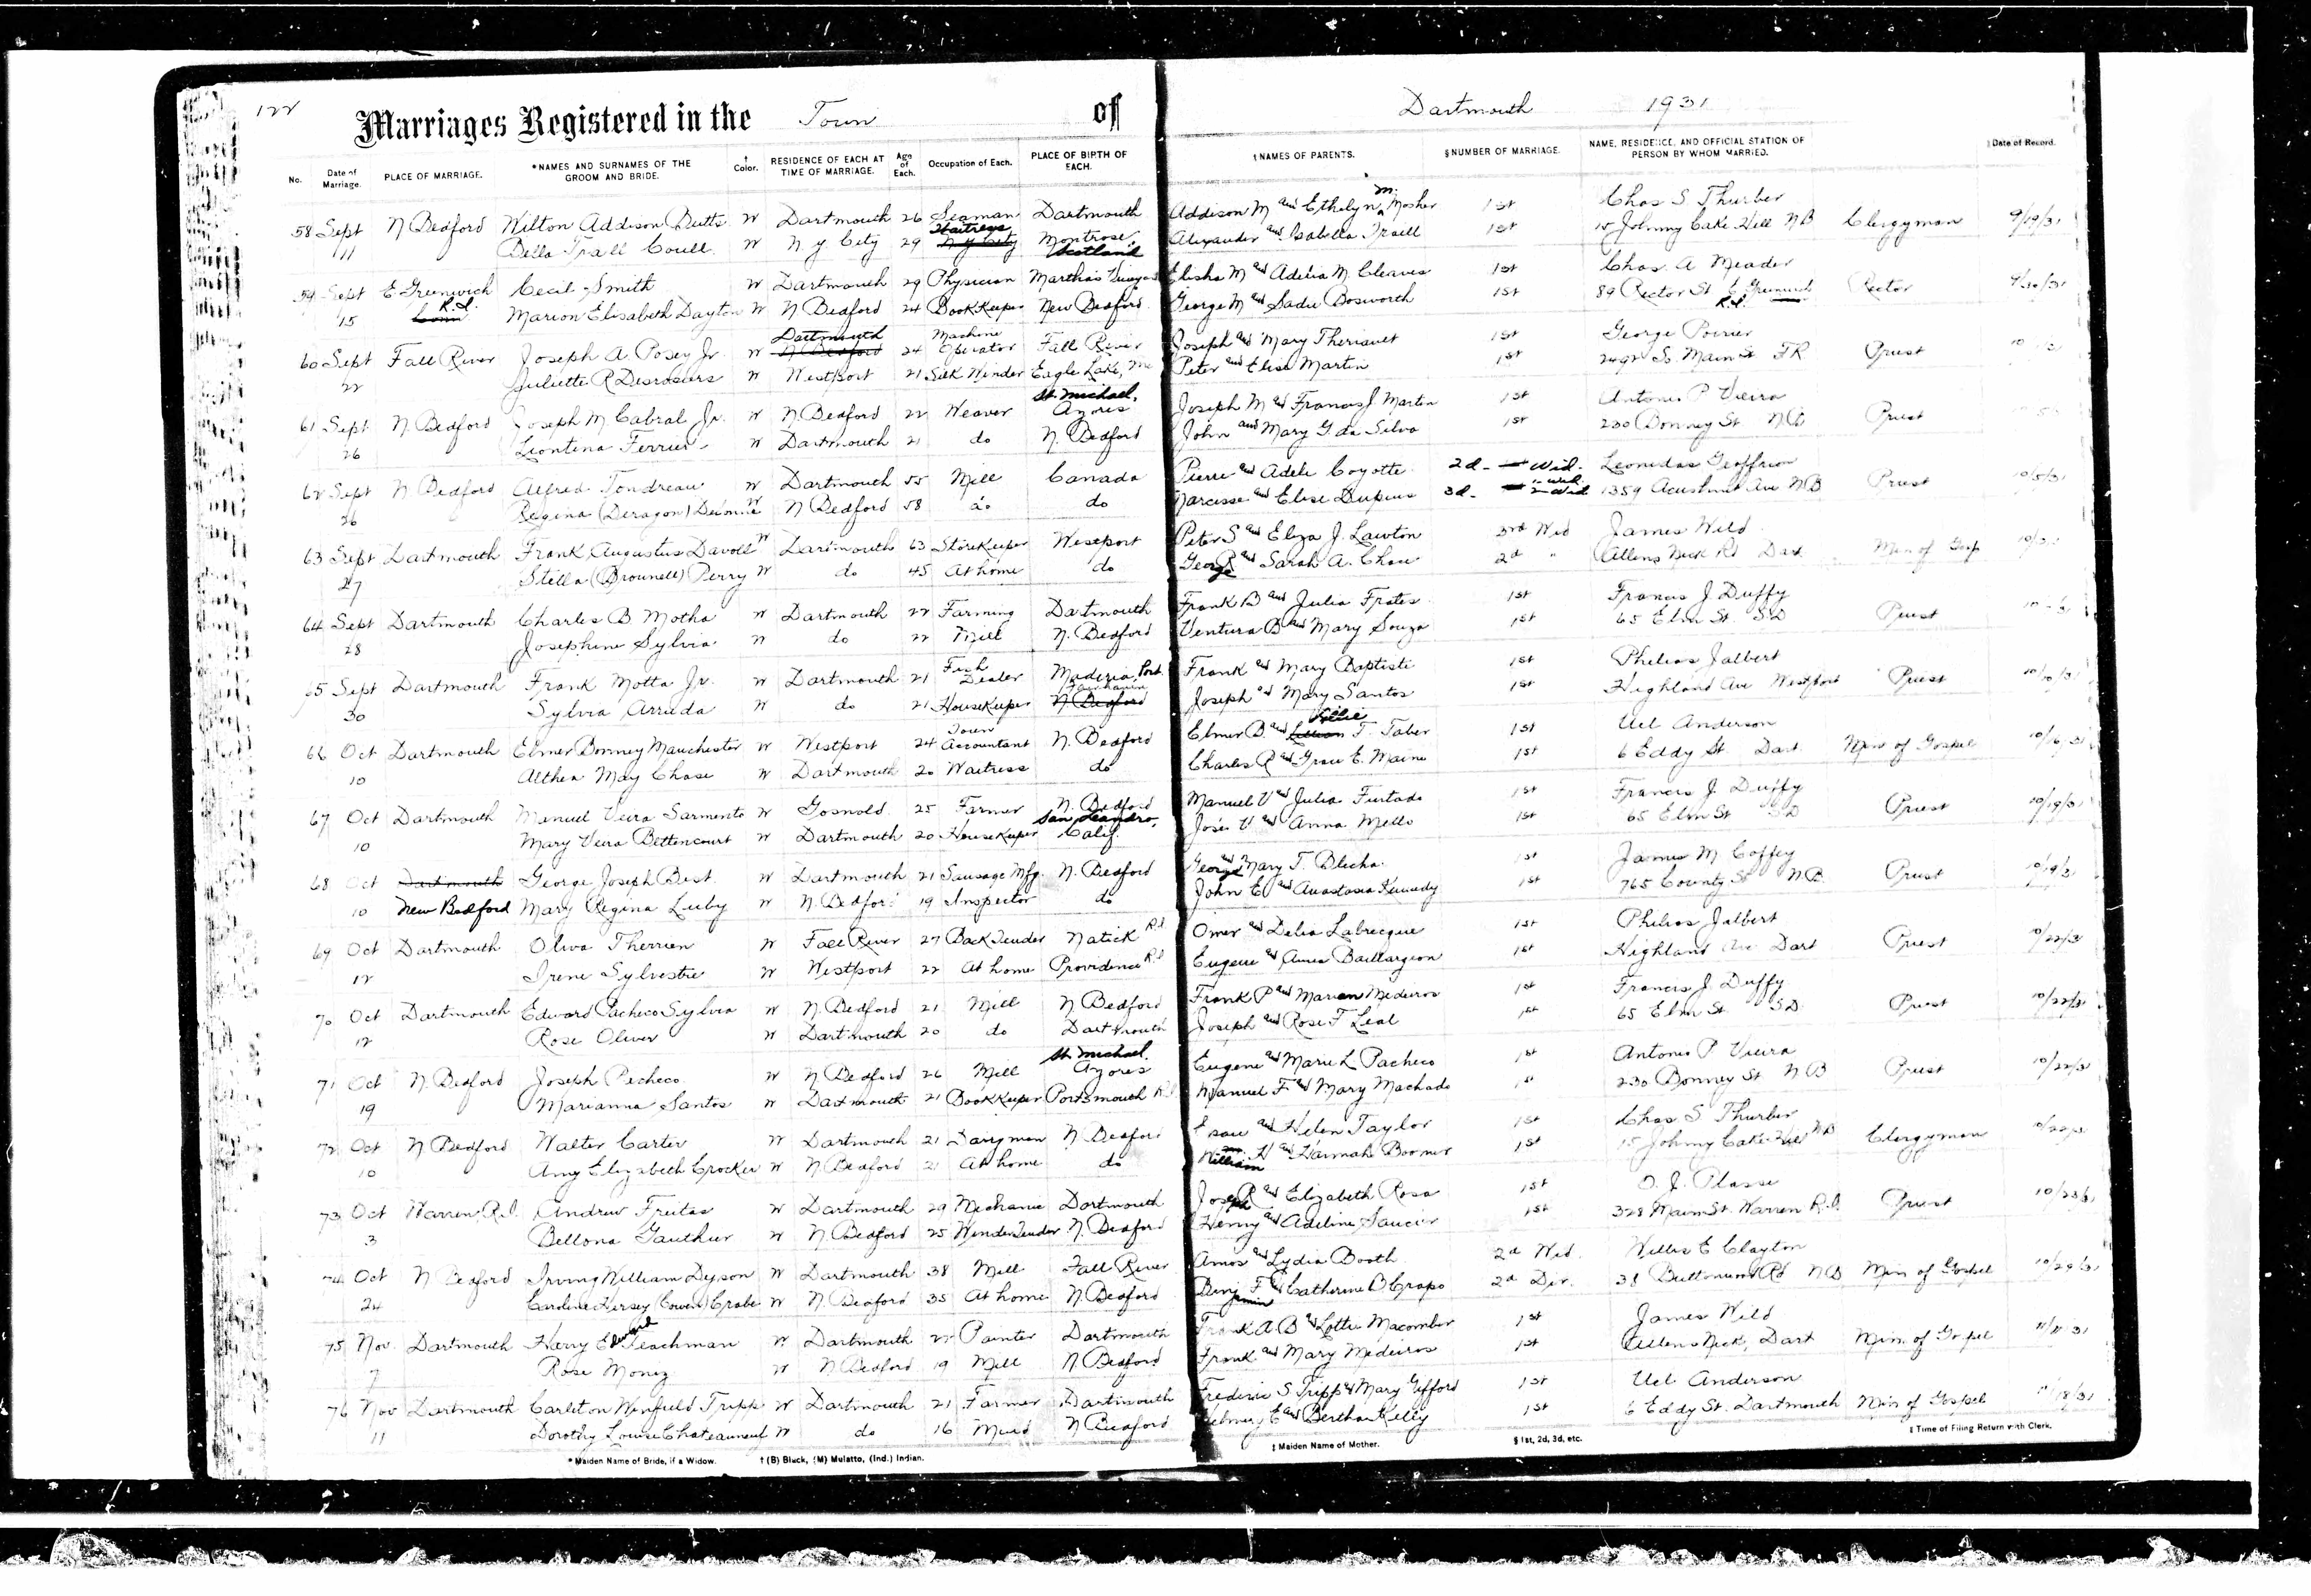 122
Marriages Registered in the Town of Dartmouth 1931
No. Date of Marriage. PLACE OF MARRIAGE. *NAMES AND SURNAMES OF THE GROOM AND BRIDE. † Color. RESIDENCE OF EACH AT TIME OF MARRIAGE. Age of Each. Occupation of Each. PLACE OF BIRTH OF EACH. ‡ NAMES OF PARENTS. § NUMBER OF MARRIAGE. NAME, RESIDENCE, AND OFFICIAL STATION OF PERSON BY WHOM MARRIED. ‖ Date of Record.
58 Sept N Bedford Wilton Addison Butts W Dartmouth 26 Seaman Dartmouth Addison M and Ethelyn M. Mosher 1st Chas S Thurber
11 Della Trall Coull W N Y City 29 Waitress N Y City Montrose Scotland Alexander and Isabella Traill 1st 15 Johnny Cake Hill NB Clergyman 9/19/31
59 Sept E Greenwich Cecil Smith W Dartmouth 29 Physician Martha's Vineyard Elisha M and Adelia M Cleaves 1st Chas. A Meader
15 Conn R.I. Marion Elisabeth Dayton W N Bedford 24 BookKeeper New Bedford George M and Sadie Bosworth 1st 89 Rector St E Greenwich R.I. Rector 9/30/31
60 Sept Fall River Joseph A Posey Jr. W Dartmouth N Bedford 24 Machine Operator Fall River Joseph and Mary Theriault 1st George Poirier
22 Juliette R Desrosiers W Westport 21 Silk Winder Eagle Lake, Me Peter and Elise Martin 1st 2492 So. Main St FR Priest
61 Sept N. Bedford Joseph M Cabral Jr. W N. Bedford 22 Weaver St. Michael, Azores Joseph M and Frances J. Martin 1st Antonio P Vieira
26 Leontina Ferreir W Dartmouth 21 do N. Bedford John and Mary G da Silva 1st 230 Bonney St NB Priest
62 Sept N Bedford Alfred Tondreau W Dartmouth 55 Mill Canada Pierre and Adele Coyotte 2d. Wid. Leonidas Geoffrion
26 Regina (Deragon) W N Bedford 58 do do Narcisse and Elise Dupuis 3d. Wid 1359 Acushnet Ave NB Priest 10/5/31
63 Sept Dartmouth Frank Augustus Davoll W Dartmouth 63 StoreKeeper Westport Peter S and Eliza J. Lawton 3rd Wid James Wild
27 Stella (Brownell) Perry W do 45 At home do George R and Sarah A. Chase 2d " Allens Neck Rd Dart. Min of Gosp
64 Sept Dartmouth Charles B Motha W Dartmouth 22 Farming Dartmouth Frank B and Julia Frates 1st Francis J Duffy
28 Josephine Sylvia W do 22 Mill N. Bedford Ventura B and Mary Souza 1st 65 Elm St. SD Priest
65 Sept Dartmouth Frank Motta Jr. W Dartmouth 21 Fish Dealer Maderia, Port. Frank and Mary Baptiste 1st Phelias Jalbert
30 Sylvia Arruda W do 21 HouseKeeper Fairhaven N Bedford Joseph and Mary Santos 1st Highland Ave Westport Priest 10/10/31
66 Oct Dartmouth Elmer Bonney Manchester W Westport 24 Town Accountant N. Bedford Elmer B. and Lillian Lillie T. Taber 1st Uel Anderson
10 Althea May Chase W Dartmouth 20 Waitress do Charles R and Grace E. Maine 1st 6 Eddy St Dart. Min of Gospel 10/16/31
67 Oct Dartmouth Manuel Veira Sarmento W Gosnold 25 Farmer N. Bedford Manuel V and Julia Furtado 1st Francis J. Duffy
10 Mary Veira Bettencourt W Dartmouth 20 HouseKeeper San Leandro, Calif. Jose V and Anna Mello 1st 65 Elm St SD Priest 10/19/31
68 Oct Dartmouth George Joseph Best W Dartmouth 21 Sausage Mfg. N. Bedford George and Mary T. Blecha 1st James M Coffey
10 New Bedford Mary Regina Luby W N. Bedford 19 Inspector do John E and Anastasia Kennedy 1st 765 County St NB. Priest 10/19/31
69 Oct Dartmouth Oliva Therrien W Fall River 27 Back Tender Natick R.I. Omer and Delia Labrecque 1st Phelias Jalbert
12 Irene Sylvestre W Westport 22 At home Providence R.I. Eugene and Baillargeon 1st Highland Ave Dart Priest 10/22/31
70 Oct Dartmouth Edward Pacheco Sylvia W N. Bedford 21 Mill N Bedford Frank P and Marion Medeiros 1st Francis J. Duffy
12 Rose Oliver W Dartmouth 20 do Dartmouth Joseph and Rose F Leal 1st 65 Elm St. SD. Priest 10/22/31
71 Oct N. Bedford Joseph Pacheco W N Bedford 26 Mill St. Michael. Azores Eugene and Marie L Pacheco 1st Antonio P Vieira
19 Marianna Santos W Dartmouth 21 BookKeeper Portsmouth R.I. Manuel F and Mary Machado 1st 230 Bonney St NB Priest 10/22/31
72 Oct N Bedford Walter Carter W Dartmouth 21 Dairyman N Bedford Isaac and Helen Taylor 1st Chas S Thurber
10 Amy Elizabeth Crocker W N Bedford 21 At home do William H and Hannah Boomer 1st 15 Johnny Cake Hill NB Clergyman
73 Oct Warren R.I. Andrew Freitas W Dartmouth 29 Mechanic Dartmouth Joseph R and Elizabeth Rosa 1st O. J. Plasse
3 Bellona Gauthier W N. Bedford 25 Winder Tender N. Bedford Henry and Adeline Saucier 1st 328 Main St. Warren R.I. Priest 10/23/31
74 Oct N Bedford Irving William Dyson W Dartmouth 38 Mill Fall River Amos and Lydia Booth 2d Wid. Willis E Clayton
24 Caroline Hersey (Cowen) Crabe W N Bedford 35 At home N Bedford Benjamin F and Catherine B Crapo 2d Div. 38 Buttonwood Rd NB Min of Gospel 10/29/31
75 Nov. Dartmouth Harry Edward Peachman W Dartmouth 22 Painter Dartmouth Frank A.B and Lottie Macomber 1st James Wild
7 Rose Moniz W N Bedford 19 Mill N Bedford Frank and Mary Medeiros 1st Allens Neck, Dart Min. of Gospel 11/11/31
76 Nov Dartmouth Carleton Winfield Tripp W Dartmouth 21 Farmer Dartmouth Frederic S Tripp & Mary Gifford 1st Uel Anderson
11 Dorothy Louise Chateauneuf W do 16 Maid N Bedford E and Bertha Kelly 1st 6 Eddy St. Dartmouth Min of Gospel 11/18/31
* Maiden Name of Bride, if a Widow. † (B) Black, (M) Mulatto, (Ind.) Indian. ‡ Maiden Name of Mother. § 1st, 2d, 3d, etc. ‖ Time of Filing Return with Clerk.